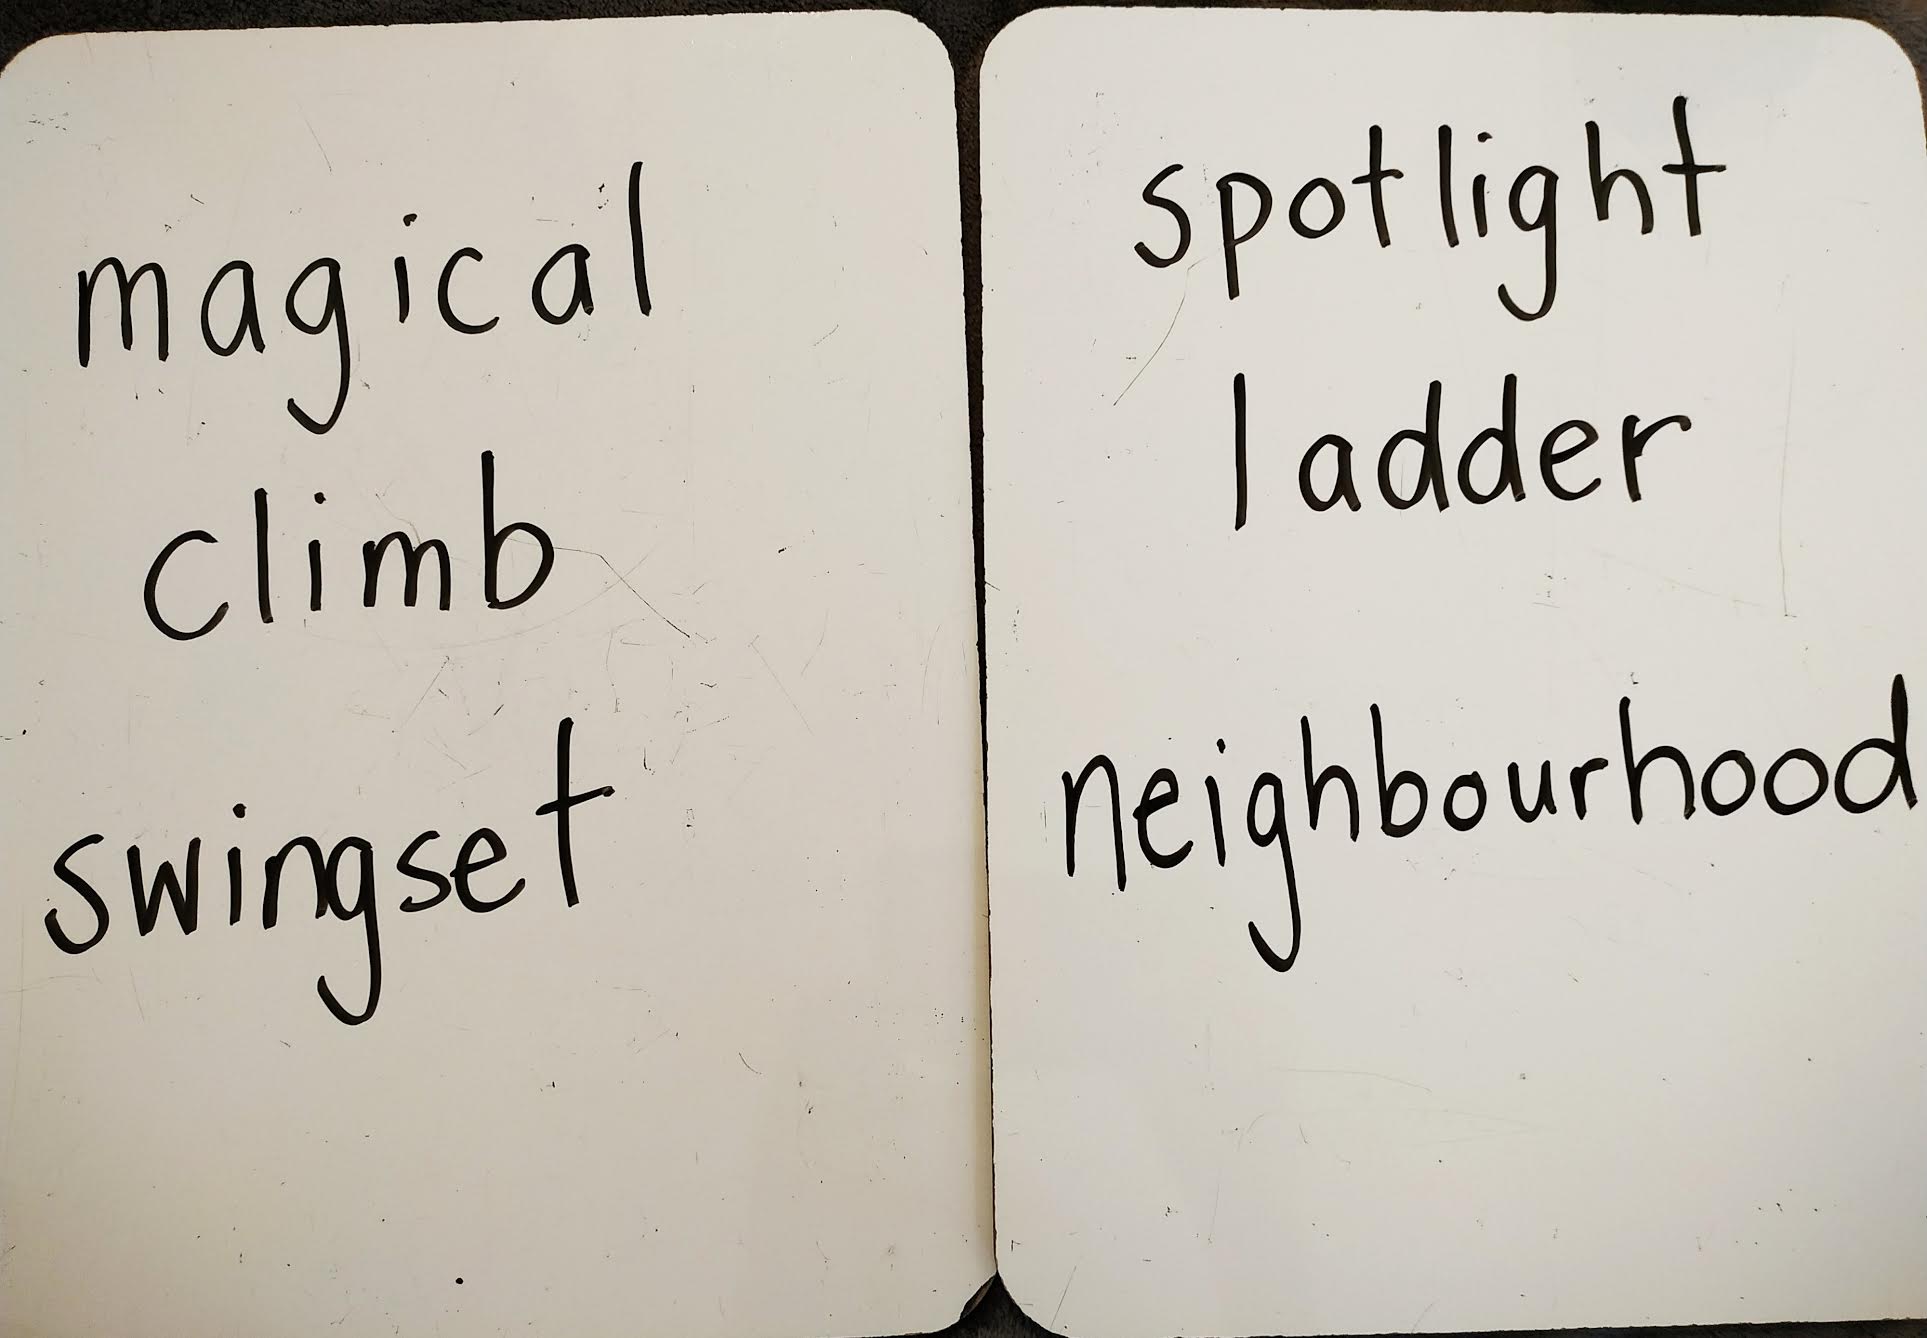 magical
climb
swingset
spotlight
ladder
neighbourhood